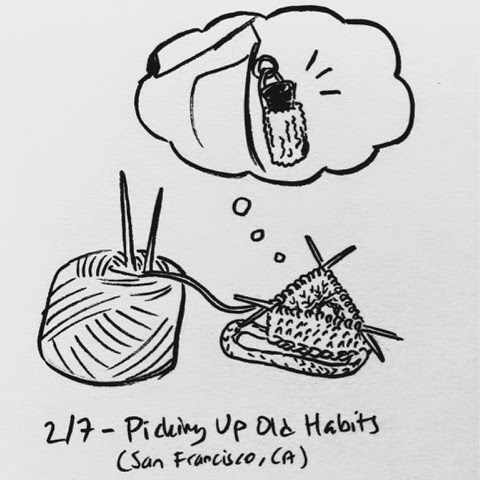 2/7 - Picking Up Old Habits
(San Francisco, CA)